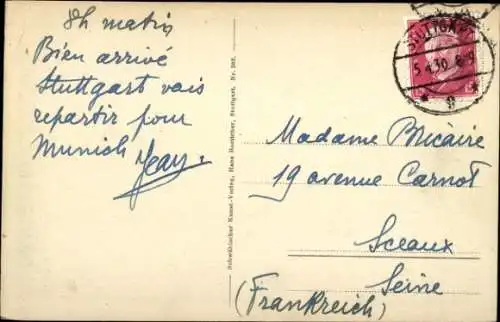 8h matin
Bien arrivé
Stuttgart vais
repartir pour
Munich Jean.
Schwäbischer Kunst-Verlag, Hans Boettcher, Stuttgart. Nr.
STUTTGART
5.4.30. 8-9
* 9 *
Madame Bricaire
19 avenue Carnot
Sceaux
Seine
(Frankreich)